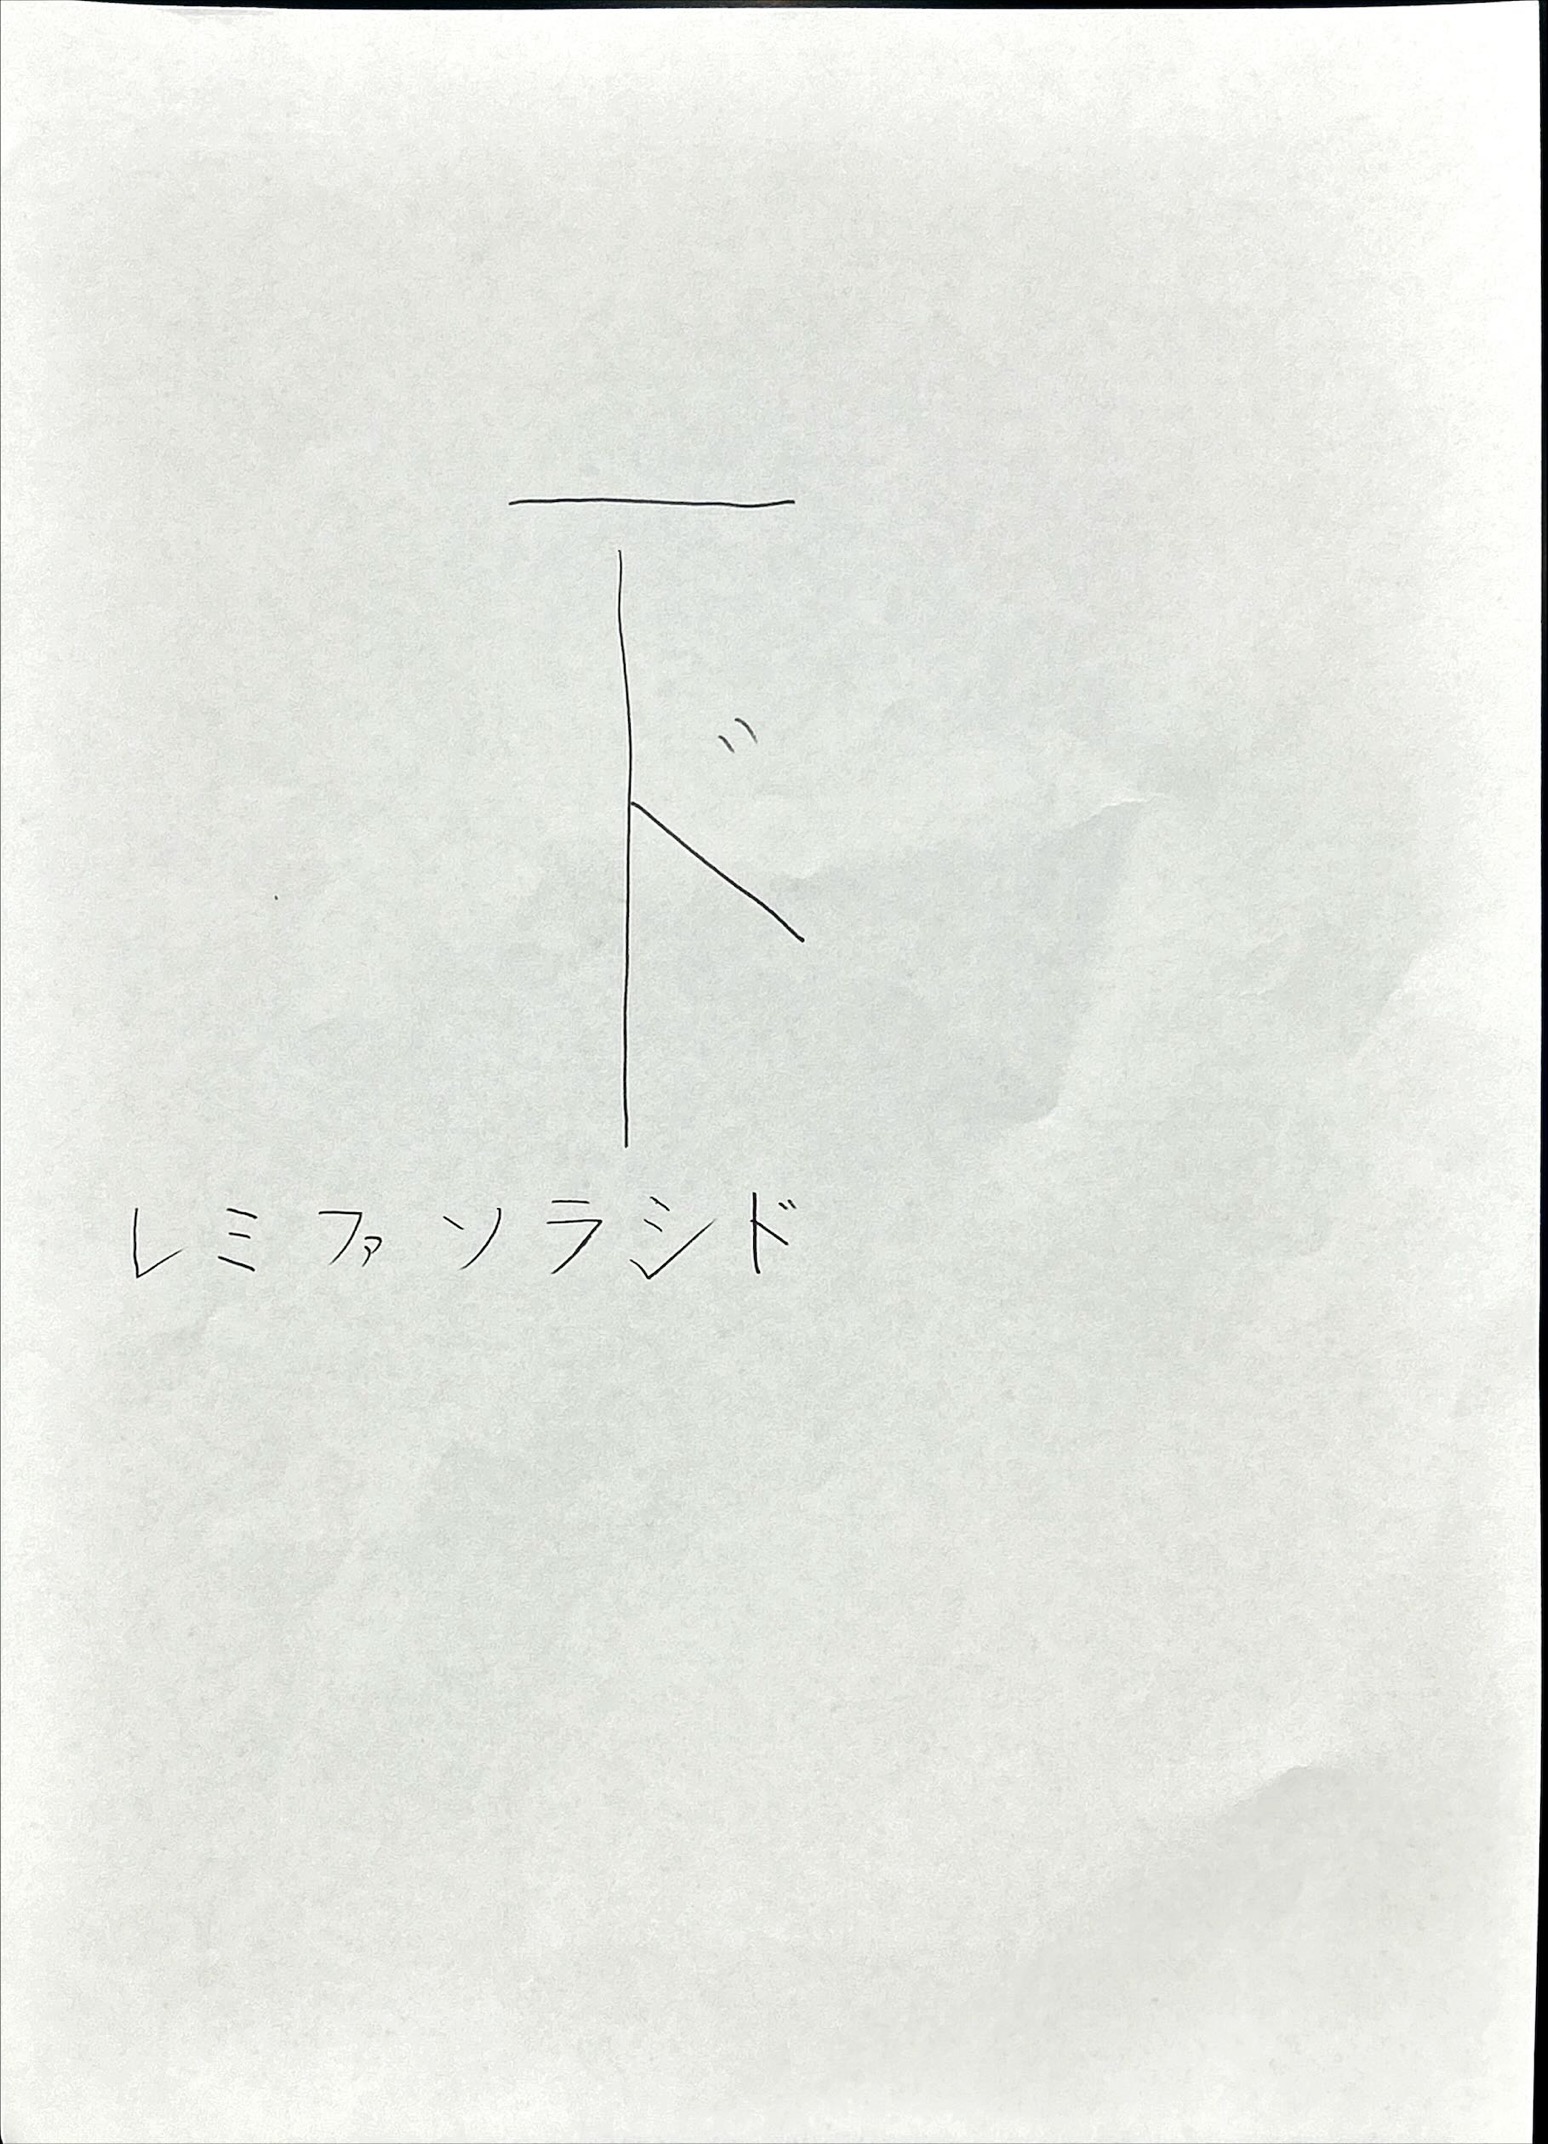 ド
レミファソラシド